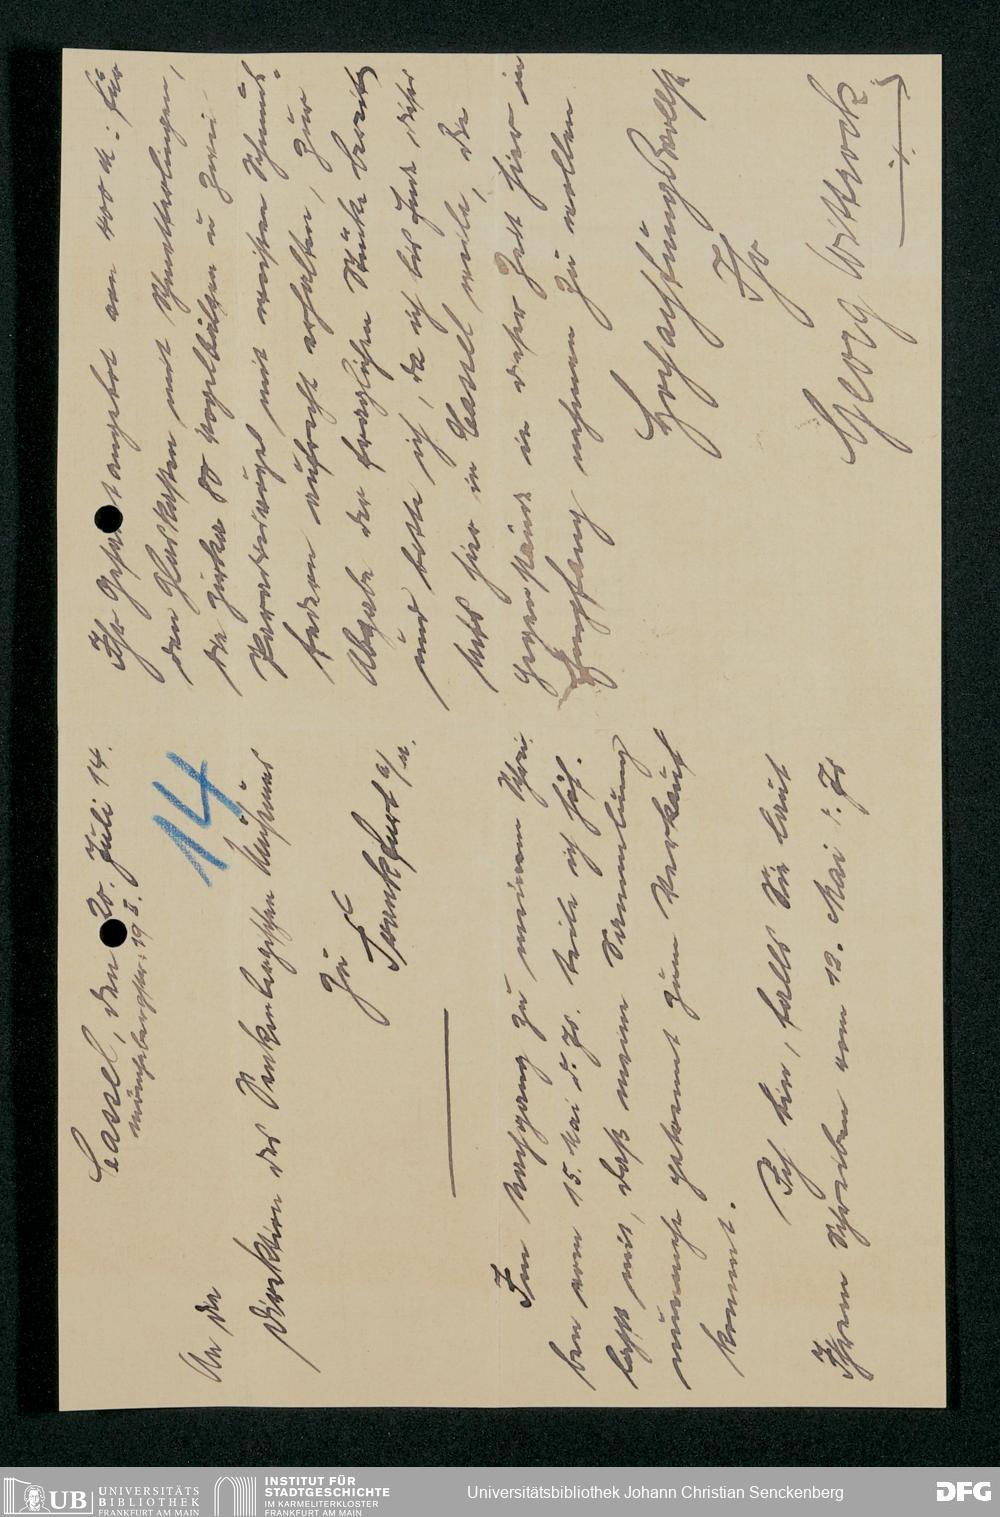 Cassel, den 20. Juli 14.
19 I.
14
An die
Direktion des Senkenbergischen Museums
zu
Frankfurt a/M.
Im Nachgang zu meinem Schrei-
ben vom 15. Mai d. Js. teile ich höf.
lichst mit, daß meine Sammlung
nunmehr getrennt zum Verkauf
kommt.
Ich bin, falls Sie laut
Ihrem Schreiben vom 12. Mai d. Js
Ihr Gesamtangebot von 400 M: für
den Glaskasten mit Schmetterlingen,
die zirka 80 Vogelbälgen u zwei
Paradiesvögel mit weißen Schmuck-
federn aufrecht erhalten, zur
Abgabe der fraglichen Stücke bereit
und bitte ich, da ich bis Ende dieses
Mts hier in Cassel weile, die
Gegenstände in dieser Zeit hier in
Empfang nehmen zu wollen
Hochachtungsvollst
Ihr
Georg Wittrock
UB UNIVERSITÄTS
BIBLIOTHEK
FRANKFURT AM MAIN
INSTITUT FÜR
STADTGESCHICHTE
IM KARMELITERKLOSTER
FRANKFURT AM MAIN
Universitätsbibliothek Johann Christian Senckenberg
DFG